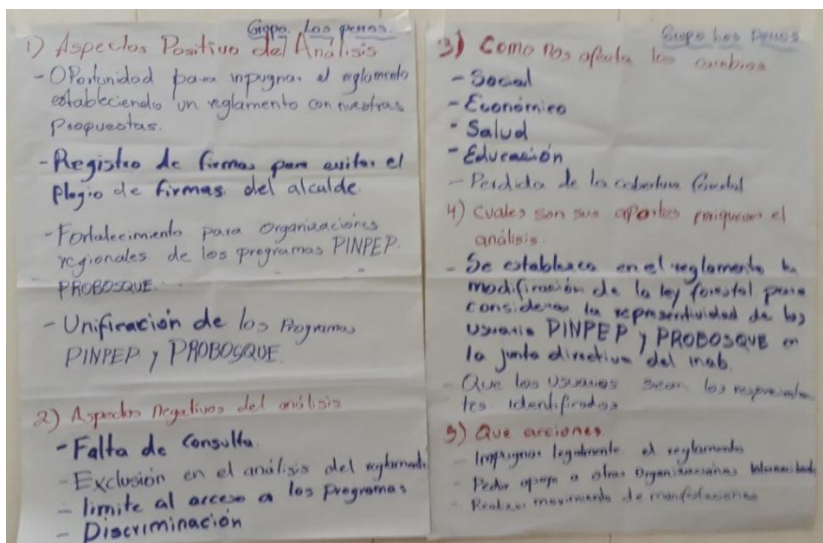 Grupo Los penos.
1) Aspectos Positivo del Análisis
- Oportunidad para inpugnar el reglamento
estableciendo un reglamento con nuestras
Propuestas.
- Registro de firmas para evitar el
Plagio de firmas del alcalde
- Fortalecimiento para Organizaciones
regionales de los programas PINPEP.
PROBOSQUE.
- Unificación de los Programas
PINPEP y PROBOSQUE.
2) Aspectos Negativos del análisis
- Falta de Consulta.
- Exclusión en el análisis del reglamento
- limite al acceso a los Programas
- Discriminación
Grupo Los Penos
3) Como nos afecta los cambios
- Social
- Económico
- Salud
- Educación
- Perdida de la cobertura forestal
4) Cuales son sus aportes el
análisis.
- Se establezca en el reglamento la
modificación de la ley forestal para
considerar la representividad de los
usuario PINPEP y PROBOSQUE en
la junta directiva del inab.
- Que los usuarios sean los
identificados
5) Que acciones
- Impugnar legalmente el reglamento
- Pedir apoyo a otras Organizaciones
- Realizar movimiento de manifestaciones